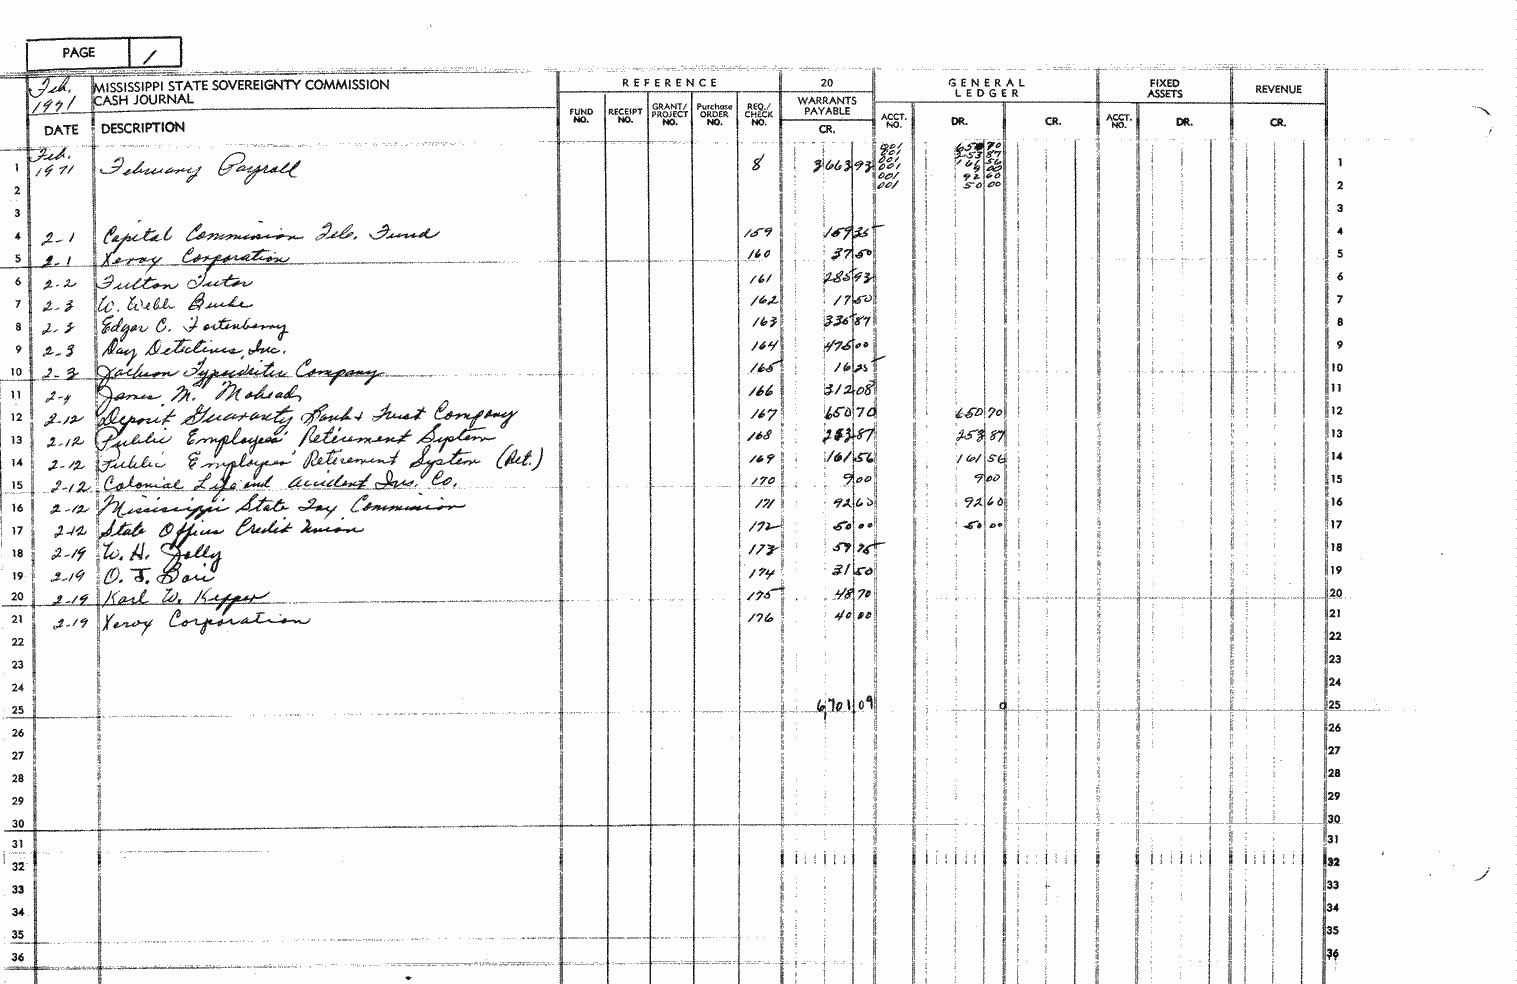 PAGE 1
Feb. 1971 MISSISSIPPI STATE SOVEREIGNTY COMMISSION
CASH JOURNAL
REFERENCE 20 GENERAL LEDGER FIXED ASSETS REVENUE
DATE DESCRIPTION FUND NO. RECEIPT NO. GRANT/ PROJECT NO. Purchase ORDER NO. REQ./ CHECK NO. WARRANTS PAYABLE CR. ACCT. NO. DR. CR. ACCT. NO. DR. CR.
001 650 70
001 253 87
1 Feb. 1971 February Payroll 8 3663 93 001 161 56 1
001 9 00
001 92 60
2 001 50 00 2
3 3
4 2-1 Capital Commission Tele. Fund 159 159 35 4
5 2-1 Xerox Corporation 160 37 50 5
6 2-2 Fulton Tutor 161 285 93 6
7 2-3 W. Webb Burke 162 17 50 7
8 2-3 Edgar C. Fortenberry 163 335 87 8
9 2-3 Day Detectives, Inc. 164 475 00 9
10 2-3 Jackson Typewriter Company 165 16 25 10
11 2-4 James M. Mohead 166 312 08 11
12 2-12 Deposit Guaranty Bank & Trust Company 167 650 70 650 70 12
13 2-12 Public Employees' Retirement System 168 253 87 253 87 13
14 2-12 Public Employees' Retirement System (Ret.) 169 161 56 161 56 14
15 2-12 Colonial Life and Accident Ins. Co. 170 9 00 9 00 15
16 2-12 Mississippi State Tax Commission 171 92 60 92 60 16
17 2-12 State Offices Credit Union 172 50 00 50 00 17
18 2-19 W. H. Jolly 173 59 75 18
19 2-19 O. J. 174 31 50 19
20 2-19 Karl W. Kepper 175 48 70 20
21 2-19 Xerox Corporation 176 40 00 21
22 22
23 23
24 24
25 6,701 09 0 25
26 26
27 27
28 28
29 29
30 30
31 31
32 32
33 33
34 34
35 35
36 36